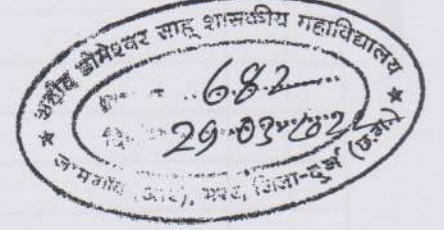 शहीद डोमेश्वर साहू शासकीय महाविद्यालय
682
29-03-202
★ जामगाँव (आर), जिला-दुर्ग (छ.ग.) ★